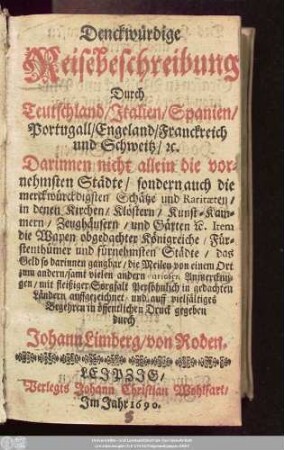 Denckwürdige
Reisebeschreibung
Durch
Teutschland/Italien/Spanien/
Portugall/Engeland/Franckreich
und Schweitz/ ꝛc.
Darinnen nicht allein die vor-
nehmsten Städte/ sondern auch die
merckwürdigsten Schätze und Raritäten/
in denen Kirchen/ Klöstern/ Kunst-Kam-
mern/ Zeughäusern/ und Gärten ꝛc. Item
die Wapen obgedachter Königreiche/ Für-
stenthümer und fürnehmsten Städte/ das
Geld so darinnen gangbar/ die Meilen von einem Ort
zum andern/ samt vielen andern curiosen Anmerckun-
gen/ mit fleißiger Sorgfalt Persöhnlich in gedachten
Ländern auffgezeichnet/ und auff vielfältiges
Begehren in öffentlichen Druck gegeben
durch
Johann Limberg/ von Roden.
LEIPZIG/
Verlegts Johann Christian Wohlfart/
Im Jahr 1690.